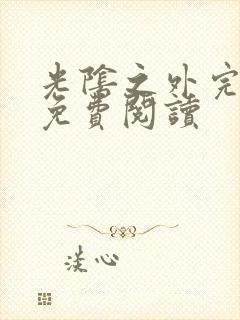 光陰之外完
免費閱讀
淡心